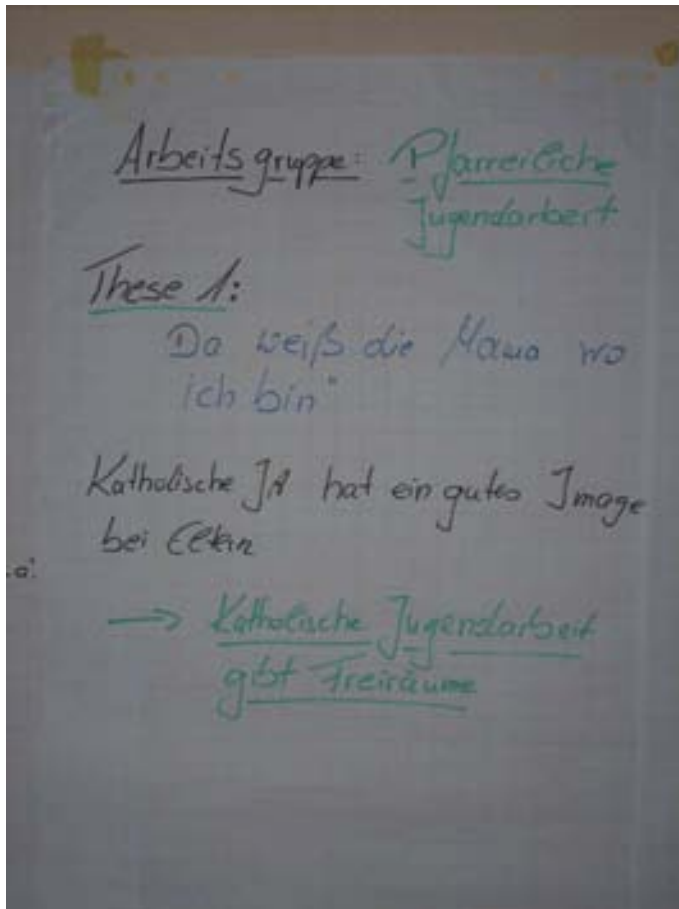 Arbeitsgruppe: Pfarreiliche
Jugendarbeit
These 1:
Da weiß die Mama wo
ich bin"
Katholische JA hat ein gutes Image
bei Eltern
→ Katholische Jugendarbeit
gibt Freiräume